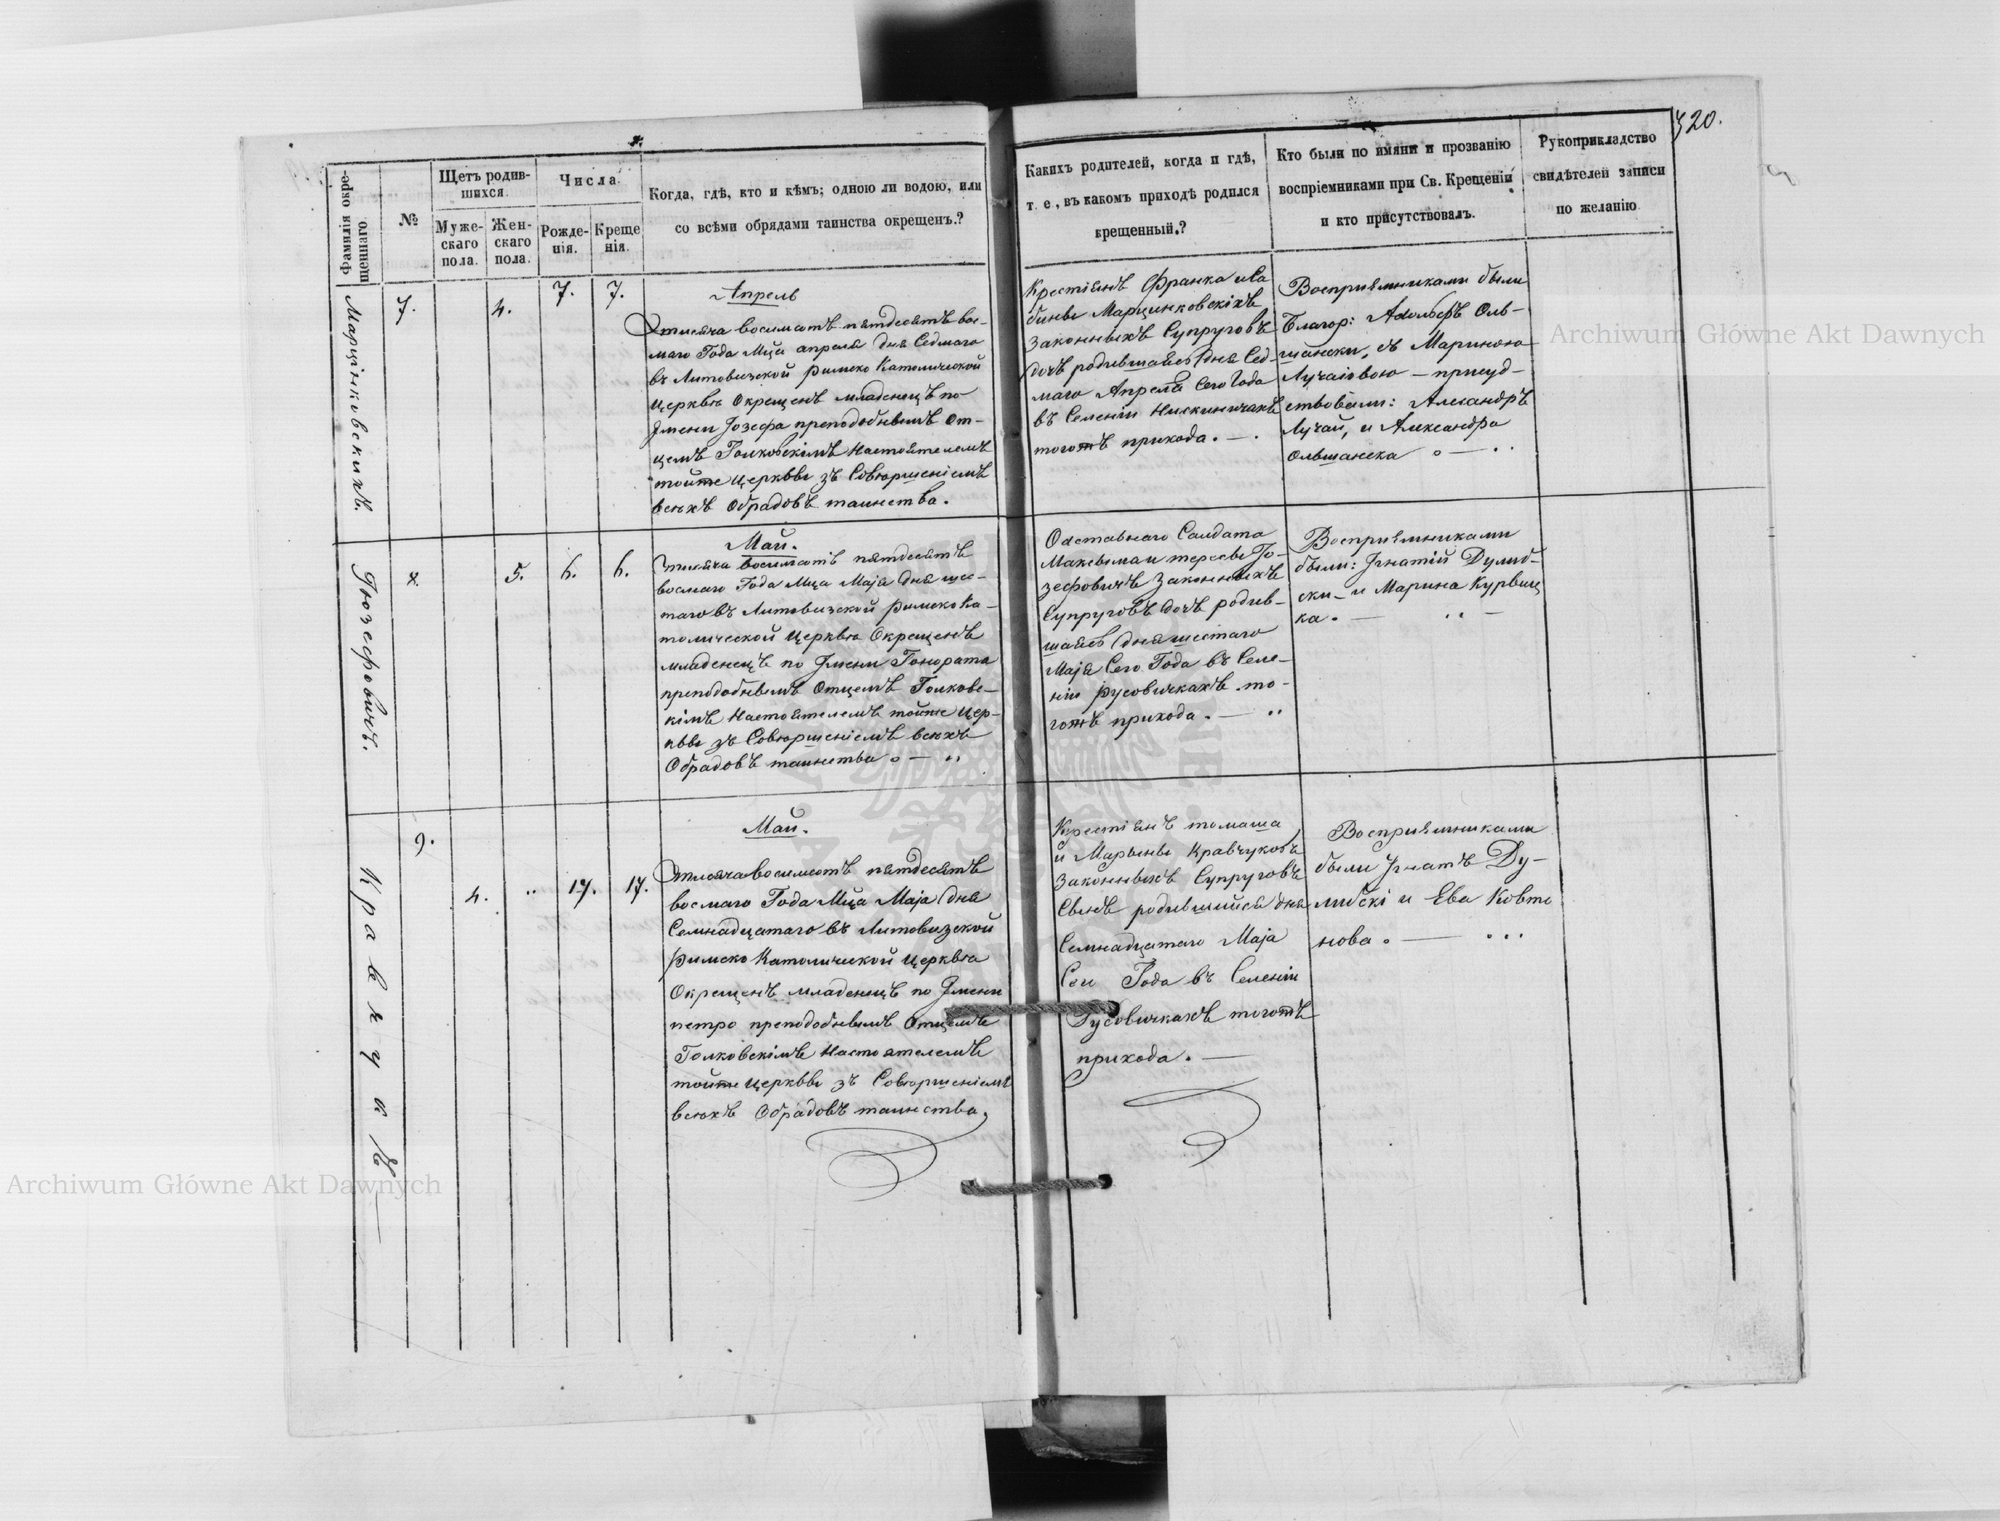 320.
Фамилія окре-
щеннаго.
№
Щетъ родив-
шихся.
Муже-
скаго
пола.
Жен-
скаго
пола.
Числа.
Рожде-
нія.
Креще
нія.
Когда, гдѣ, кто и кѣмъ; одною ли водою, или
со всѣми обрядами таинства окрещенъ.?
Какихъ родителей, когда и гдѣ,
т. е., въ какомъ приходѣ родился
крещенный.?
Кто были по имяни и прозванію
воспріемниками при Св. Крещеніи
и кто присутствовалъ.
Рукоприкладство
свидѣтелей записи
по желанію
Марцінковскихъ.
7.
4.
7.
7.
Апрель
Тысяча восимсотъ пятдесятъ вос-
маго Года Мца апреля дня Седмаго
въ Литовизской римско Католической
Церквы Окрещенъ младенецъ по
Імени Іозефа преподобнымъ От-
цемъ Голковскімъ Настоятелемъ
тойже Церквы зъ Совюршеніемъ
всѣхъ Обрадовъ таинства.
Крестіянъ Франка и Са
бины Марцинковскіхъ
Законныхъ Супруговъ
дочь родившаяся дня Сед-
маго Апреля Сего Года
въ Селеніи Нискиничахъ
тогожъ прихода. — .
Восприямниками были
Благор: Адольфъ Оль-
шански, съ Мариною
Лучаіовою — присуд-
ствовали: Алесандръ
Лучай, и Александра
Ольшанска
Гюзефовичъ.
8.
5.
6.
6.
Май.
Тысяча восимсотъ пятдесятъ
восмаго Года Мца Маја дня шес-
таго въ Литовизской римско Ка-
толической Церквы Окрещенъ
младенецъ по Імени Гонората
преподобнымъ Отцемъ Голковс-
кімъ Настоятелемъ тойже Цер-
квы зъ Совюршеніемъ всѣхъ
Обрадовъ таинства
Отставнаго Салдата
Максыма и тересы Гю-
зефовичъ Законныхъ
Супруговъ дочь родив-
шаясь дня шестаго
Маја Сего Года въ Селе-
ніи Русовичкахъ то-
гожъ прихода. —
Восприямниками
были: Ігнатій Дулиб-
ски — и Марина Курвиц
ка. —
Кравчукъ —
9.
4.
..
17.
17.
Май.
Тысяча восимсотъ пятдесятъ
восмаго Года Мца Маја дня
Семнадцатаго въ Литовизской
римско Католической Церквы
Окрещенъ младенецъ по Імени
петро преподобнымъ Отцемъ
Голковскімъ Настоятелемъ
тойже Церквы зъ Совюршеніемъ
всѣхъ Обрадовъ таинства,
Крестіянъ томаша
и Марыны Кравчуковъ
Законныхъ Супруговъ
Сынъ родившийся дня
Семнадцатаго Маја
Сего Года въ Селеніи
Русовичкахъ тогожъ
прихода. —
Восприямниками
были Ігнатъ Ду-
либскі и Ева Ковту
нова. — ...
Archiwum Główne Akt Dawnych
Archiwum Główne Akt Dawnych